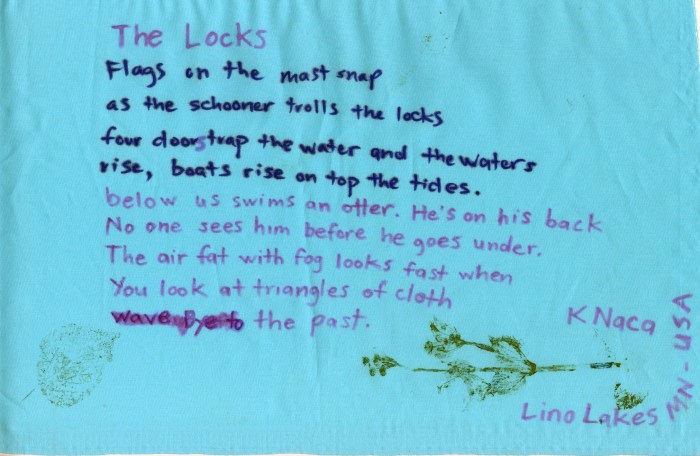 The Locks
Flags on the mast snap
as the schooner trolls the locks
four doors trap the water and the waters
rise, boats rise on top the tides.
below us swims an otter. He's on his back
No one sees him before he goes under.
The air fat with fog looks fast when
You look at triangles of cloth
wave bye to the past.
K Naca
Lino Lakes
MN-USA